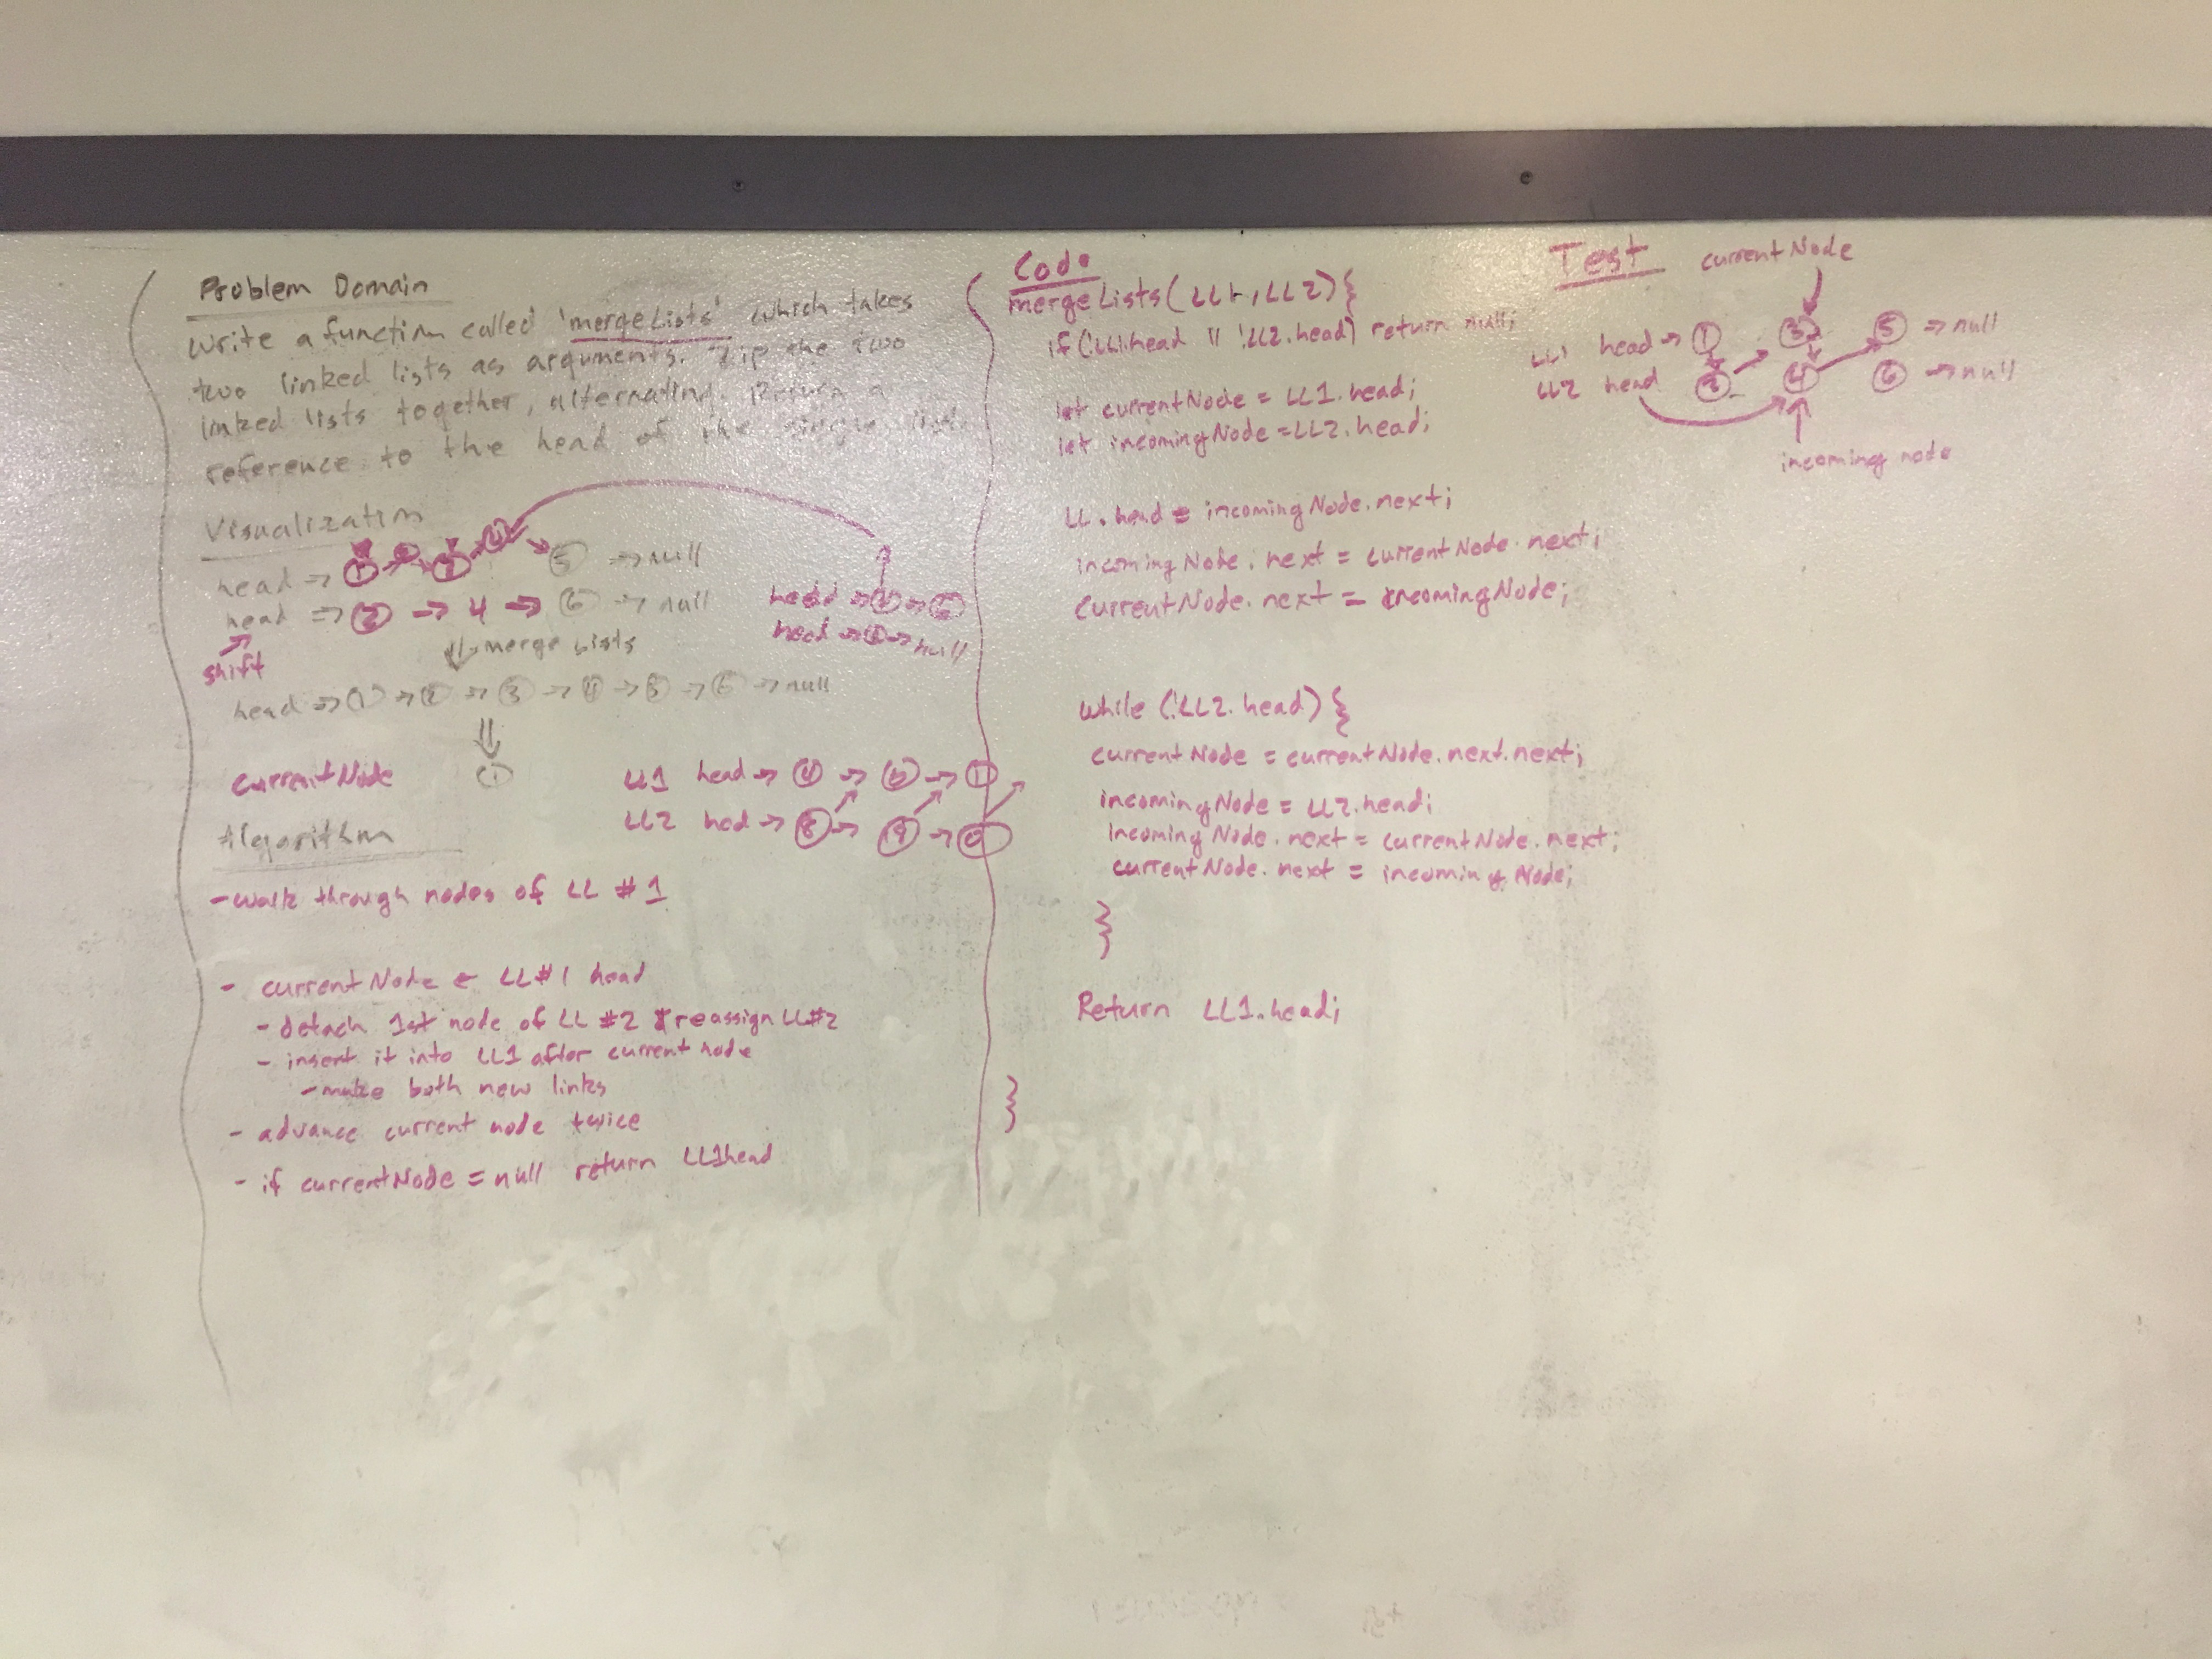 Problem Domain
Write a function called 'mergeLists' which takes
two linked lists as arguments. Zip the two
linked lists together, alternating. Return a
reference to the head of the single list.
Visualization
head → 1 2 3 4 → 5 → null
head → 2 → 4 → 6 → null
shift
head → 4 → 6
head → 6 → null
merge Lists
head → 1 → 2 → 3 → 4 → 5 → 6 → null
currentNode 1
LL1 head →
LL2 head → 8 → 9 →
Algorithm
- walk through nodes of LL #1
- currentNode ← LL#1 head
- detach 1st node of LL #2 & reassign LL#2
- insert it into LL1 after current node
- make both new links
- advance current node twice
- if currentNode = null return LL1head
Code
mergeLists(LL1, LL2){
if(!LL1.head || !LL2.head) return null;
let currentNode = LL1.head;
let incomingNode = LL2.head;
LL.head = incomingNode.next;
incomingNode.next = currentNode.next;
currentNode.next = incomingNode;
while (!LL2.head) {
currentNode = currentNode.next.next;
incomingNode = LL2.head;
incomingNode.next = currentNode.next;
currentNode.next = incomingNode;
}
Return LL1.head;
}
Test
currentNode
LL1 head → 1 3 5 → null
LL2 head 2 4 6 → null
incoming node